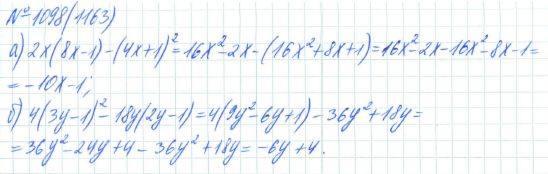 № 1098(1163)
а) 2x(8x-1)-(4x+1)²=16x²-2x-(16x²+8x+1)=16x²-2x-16x²-8x-1=
=-10x-1;
б) 4(3y-1)²-18y(2y-1)=4(9y²-6y+1)-36y²+18y=
=36y²-24y+4-36y²+18y=-6y+4.